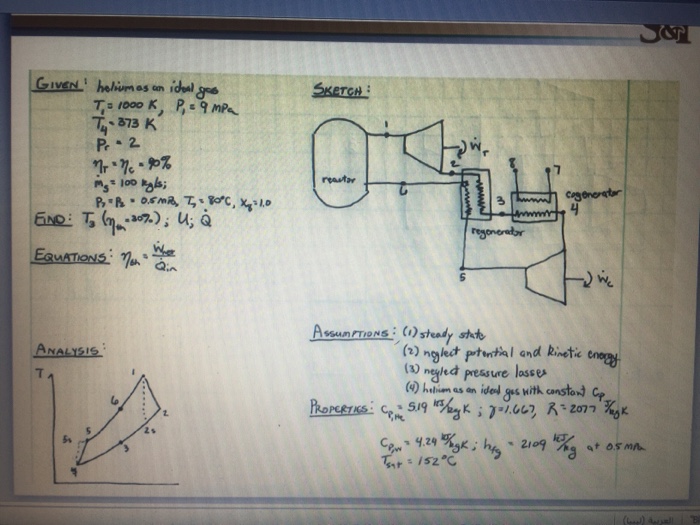 S&T
GIVEN: helium as an ideal gas
T₁ = 1000 K, P₁ = 9 MPa
T₄ = 373 K
Pr = 2
ηT = ηc = 90%
ṁ = 100 kg/s;
P₇ = P₈ = 0.5 MPa, T₇ = 80°C, X₈ = 1.0
FIND: T₃ (ηth = 30%); U; Q̇
EQUATIONS: ηth = Ẇnet
Q̇in
ANALYSIS:
T
1
6
2
5
5s
2s
3
4
SKETCH:
reactor
1
ẆT
2
8
7
6
3
cogenerator
4
regenerator
5
Ẇc
ASSUMPTIONS: (1) steady state
(2) neglect potential and kinetic energy
(3) neglect pressure losses
(4) helium as an ideal gas with constant Cp
PROPERTIES: Cp,He = 5.19 kJ/kgK; γ = 1.667, R = 2077 J/kgK
Cp,w = 4.24 kJ/kgK; hfg = 2109 kJ/kg at 0.5 MPa
Tsat = 152°C